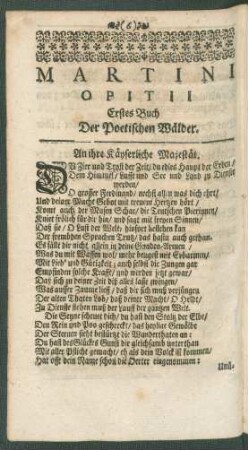 (6)
MARTINI
OPITII
Erstes Buch
Der Poetischen Wälder.
An ihre Käyserliche Majestät.
Zier und Trost der Zeit/ du edles Haupt der Erden/
Dem Himmel/ Lufft und See und Land zu Dienste
werden/
O grosser Ferdinand/ wohl was dich ehrt/
Und deiner Macht Gebot mit treuem Hertzen hört/
Kömt auch der Musen Schar/ die Teutschen Pierinnen/
Kniet frölich für dir hin/ und sagt mit freyen Sinnen/
Daß sie/ O Lust der Welt/ hinfort bestehen kan
Der frembden Sprachen Trutz/ das hastu auch gethan.
Es fällt dir nicht allein zu deine Gnaden-Armen
Was du mit Waffen wol/ mehr beugest mit Erbarmen/
Mit Lieb' und Gütigkeit; auch selbst die Zungen
Empfinden solche Krafft/ und werden jetzt gewar/
Daß sich zu deiner Zeit diß alles lasse zwingen/
Was ausser Zwange ließ/ daß dir sich muß verjüngen
Der alten Thaten Lob/ daß deiner Macht/ O Held/
Zu Dienste stehen muß der Lauff der gantzen Welt.
Die Geyer scheuet dich/ du hast den Stoltz der Elbe/
Den Rein und Poo geschreckt/ das hohe Gewälbe
Der Sternen sieht bestürtzt die Wunderthaten an:
Du hast des Glückes Gunst dir gleichsamb unterthan
Mit aller Pflicht gemacht/ eh als dein Volck ist kommen/
Hat offt dein Name schon die Oerter eingenommen:
Und